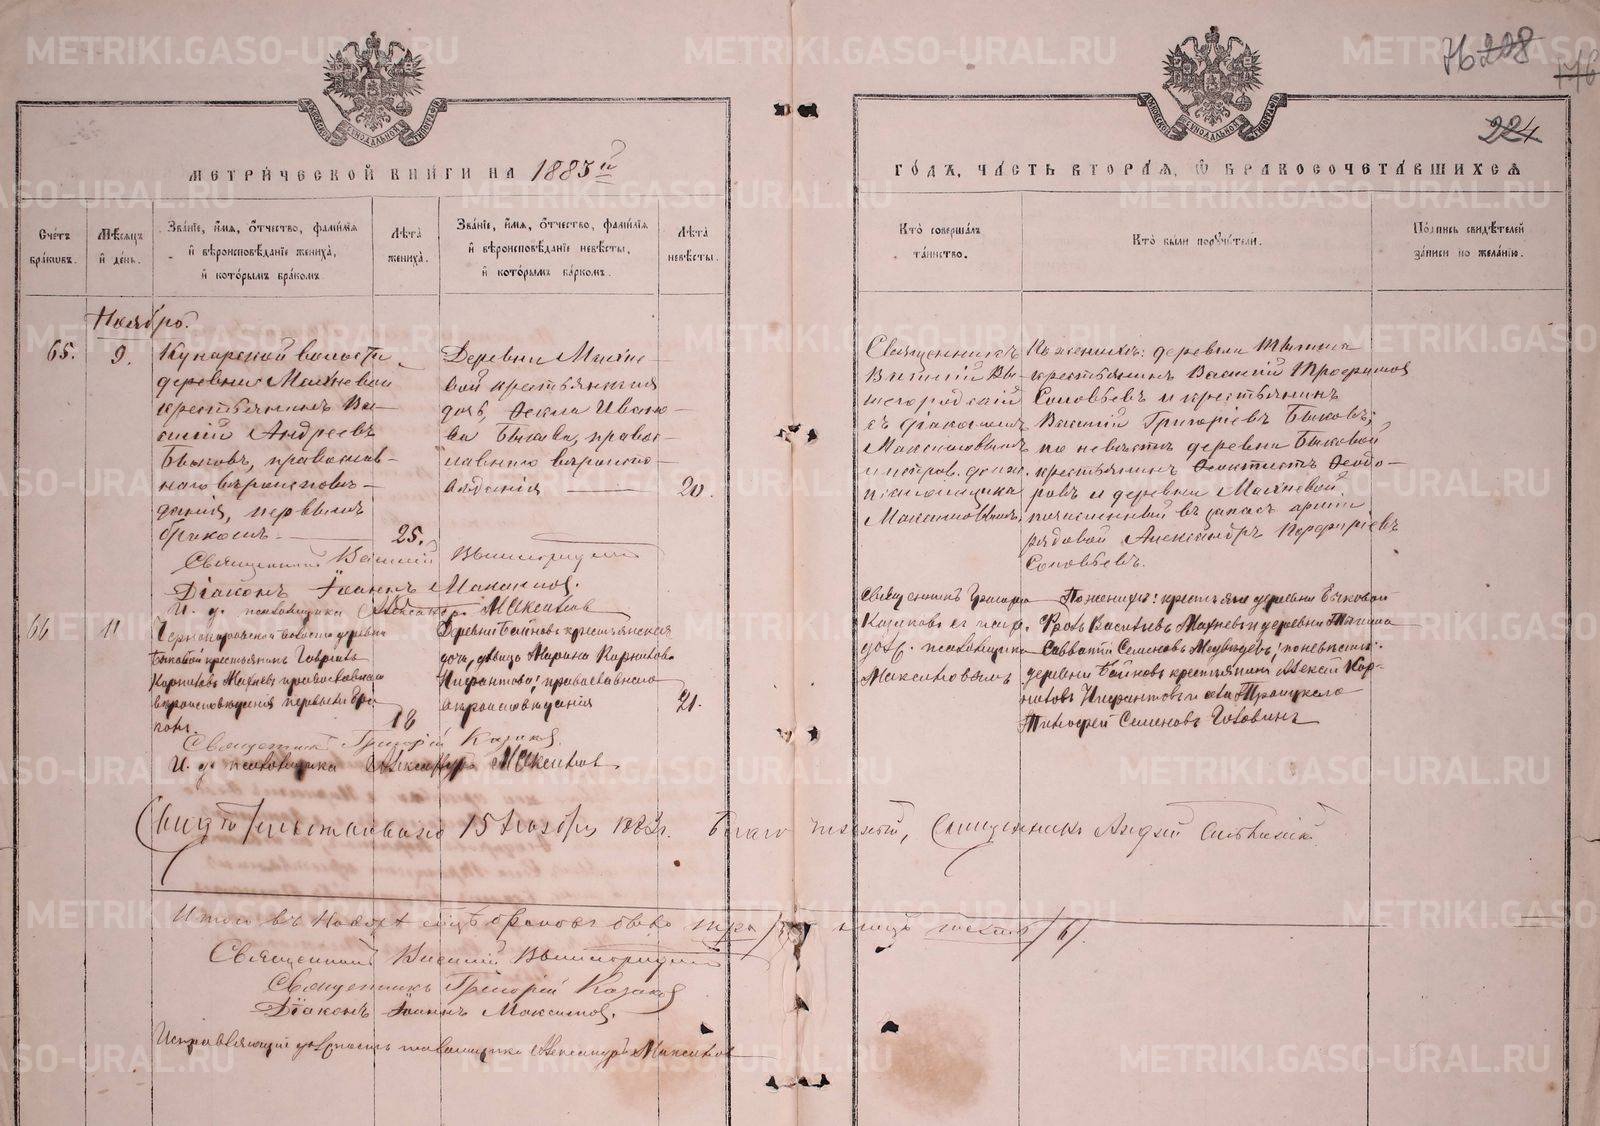 METRIKI.GASO-URAL.RU
76 228
176
224
МЕТРИЧЕСКОЙ КНИГИ НА 1883й
ГОДЪ, ЧАСТЬ ВТОРАЯ, Ѡ БРАКОСОЧЕТАВШИХСЯ
Счетъ браковъ.
Мѣсяцъ и день.
Званіе, имя, отчество, фамилія и вѣроисповѣданіе жениха, и которымъ бракомъ.
Лѣта жениха.
Званіе, имя, отчество, фамилія и вѣроисповѣданіе невѣсты, и которымъ баркомъ.
Лѣта невѣсты.
Кто совершалъ таинство.
Кто были поручители.
Подпись свидѣтелей записи по желанію.
Ноябрь.
65.
9.
Кунарской волости
деревни Махневой
крестьянинъ Ва-
силий Андреевъ
Быковъ, православ-
наго вѣроисповѣ-
данія, первымъ
бракомъ.
25.
Деревни Махне-
вой крестьянская
дочь, Ѳекла Ивано-
ва Быкова, право-
славнаго вѣроиспо-
вѣданія
20.
Священникъ
Василій Вы-
шегородскій
съ діакономъ
Максимовымъ
и испр. долж.
псаломщика
Максимовымъ.
По женихѣ: деревни
крестьянинъ Василій Трофимов
Соловьевъ и крестьянинъ
Василій Григоріевъ Быковъ;
по невѣстѣ деревни Быковой
крестьянинъ Ѳеоктистъ Ѳеодо-
ровъ и деревни Махневой
въ запасъ арміи
рядовой Александръ Порфиріевъ
Соловьевъ.
Священникъ Василій Вышегородскій
Діаконъ Іоаннъ Максимов.
И. д. псаломщика Александръ Максимовъ
66
11
волости деревни
Быковой крестьянинъ Гавріилъ
Карпиловъ Махневъ православнаго
вѣроисповѣданія первымъ бра-
комъ.
18
крестьянская
дочь, дѣвица Марина Карпилова
православнаго
вѣроисповѣданія
21.
Священникъ Григорій
Казаковъ съ испр.
долж. псаломщика
Максимовымъ
По женихѣ: крестьяне деревни Быковой
Васильевъ Махневъ и деревни
Савватій Семеновъ Медведевъ; по невѣстѣ:
деревни крестьянинъ Алексѣй Кар-
пиловъ и села Троицкаго
Тимофей Семеновъ
Священникъ Григорій Казаков.
И. д. псаломщика Александръ Максимовъ.
Свидѣтельствовалъ 15 ноября 1883 г. Благочинный, Священникъ Андрей
Итого въ Ноябрѣ мѣсяцѣ браковъ было три /3/, а лицъ шесть /6/.
Священникъ Василій Вышегородскій
Священникъ Григорій Казаков
Діаконъ Іоаннъ Максимов.
Исправляющій должность псаломщика Александръ Максимовъ